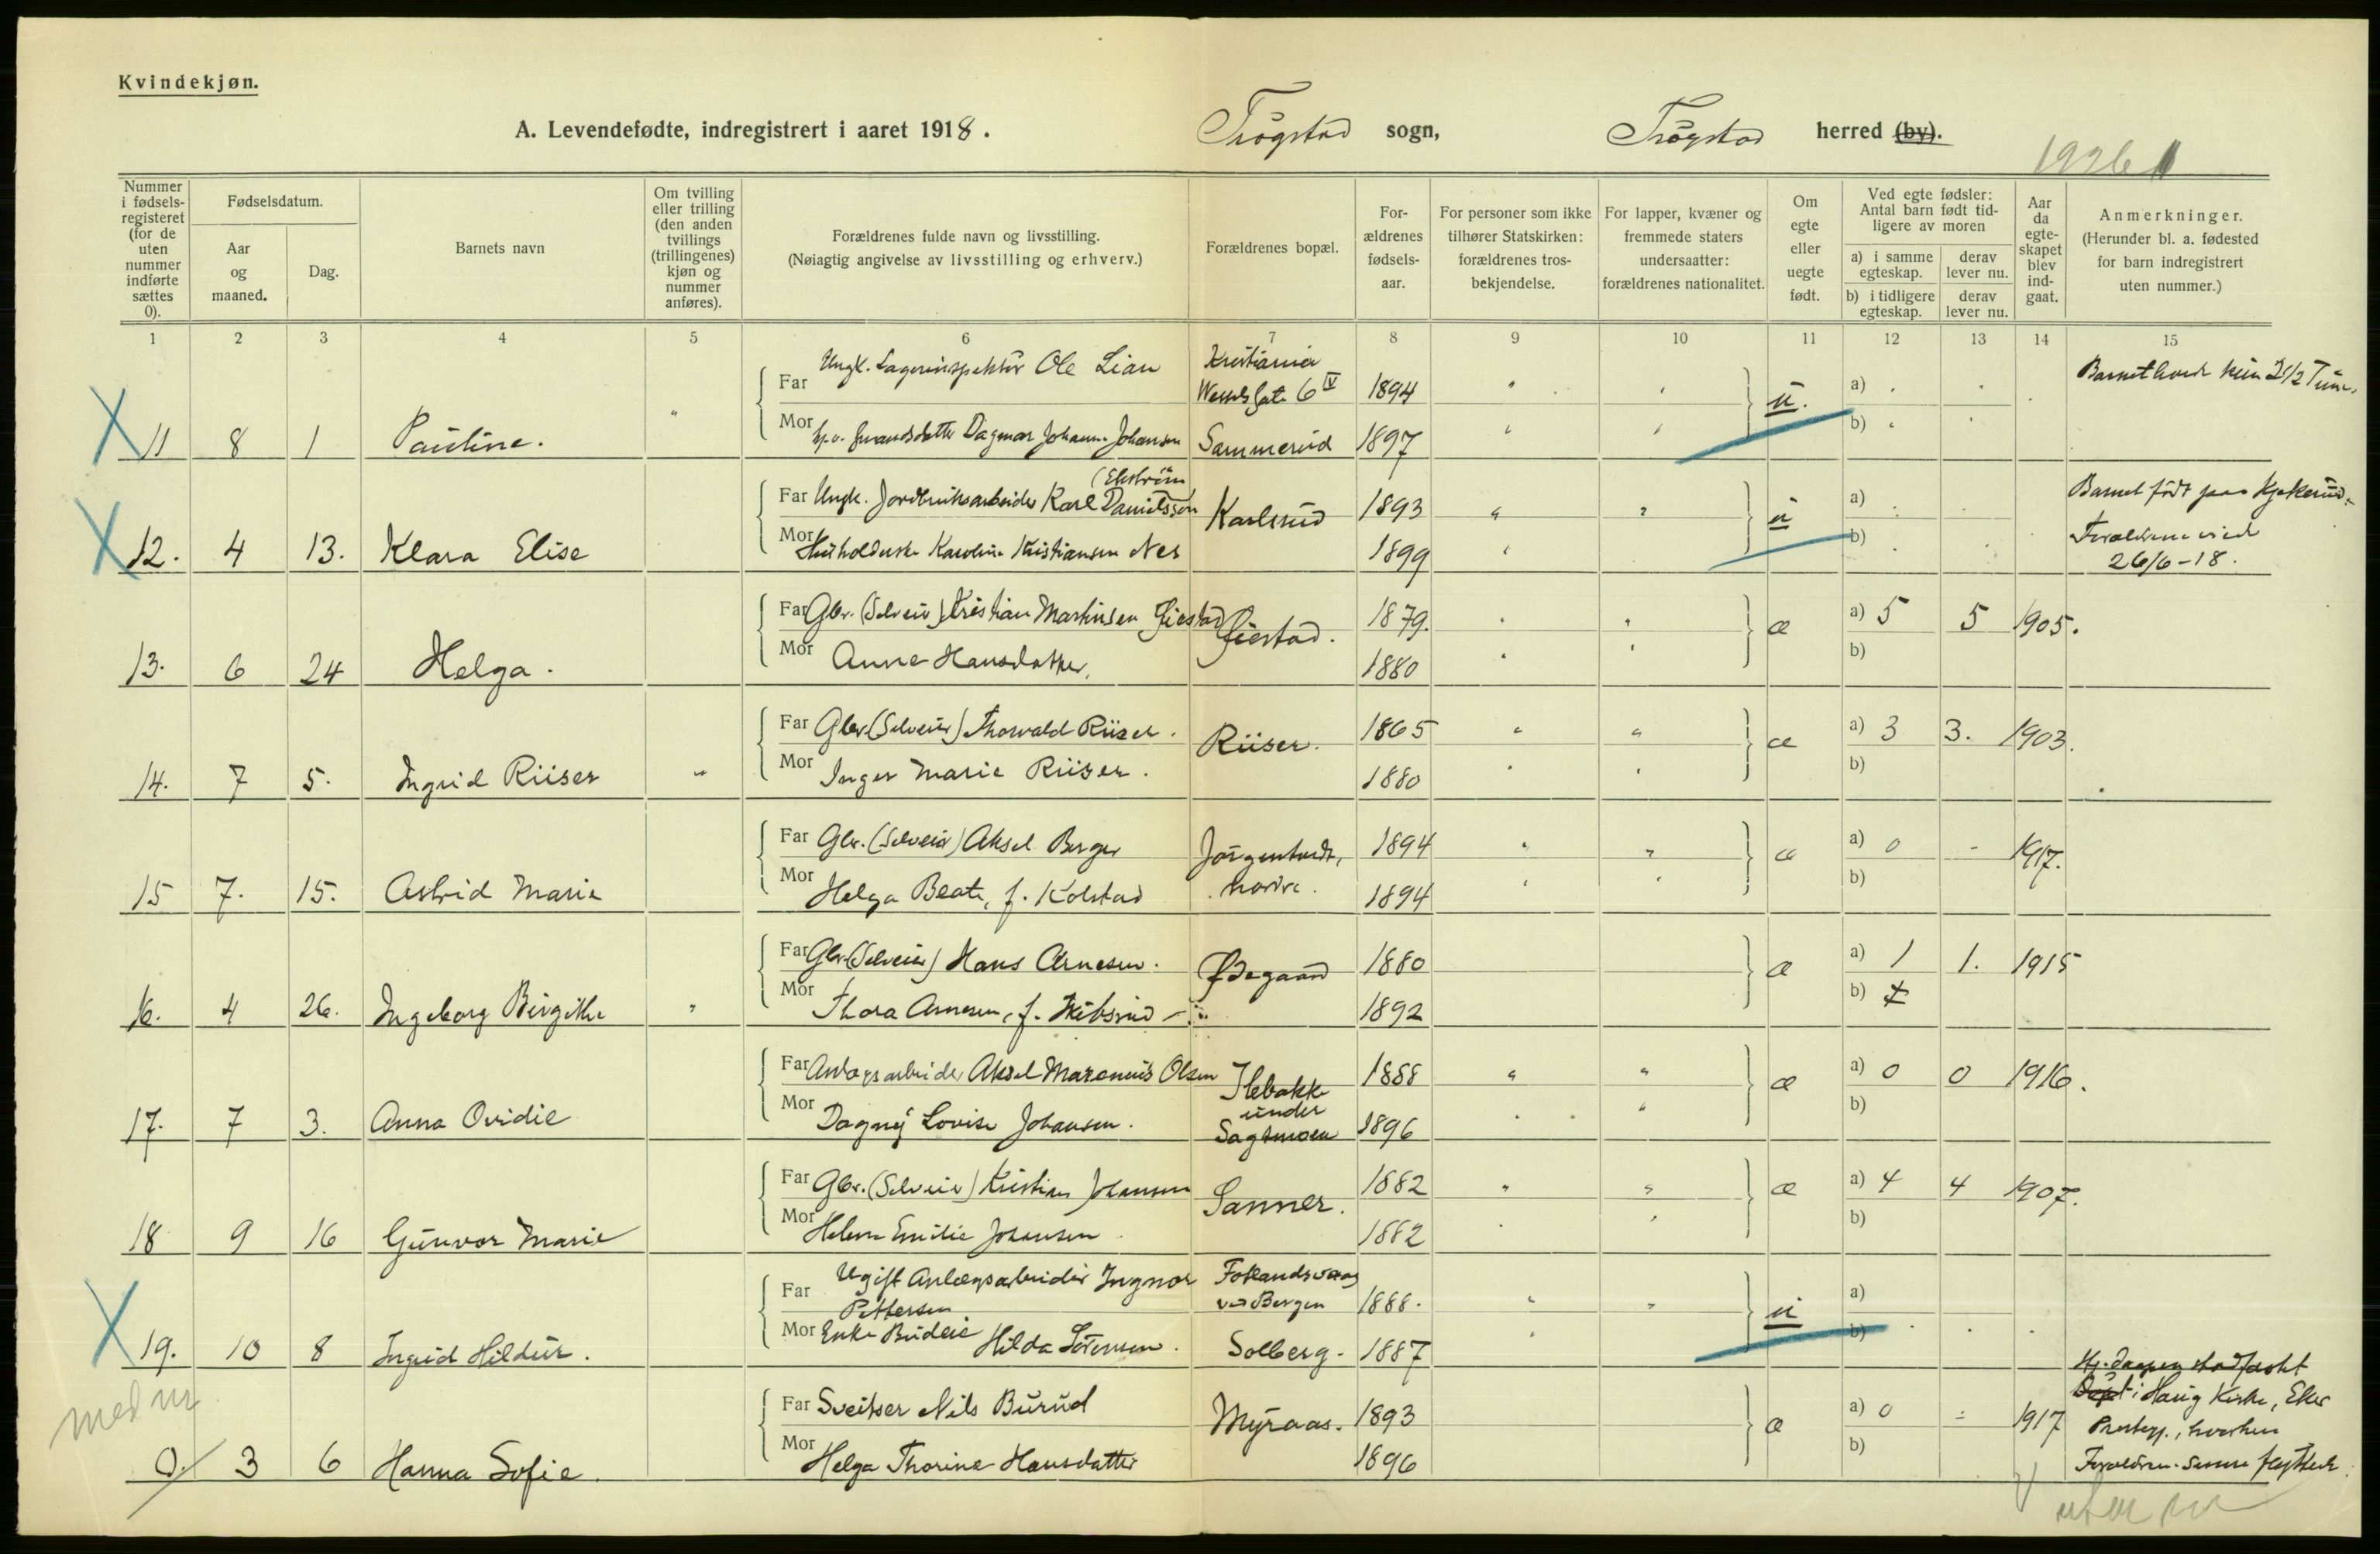 Kvindekjøn.
A. Levendefødte, indregistrert i aaret 1918. Trøgstad sogn, Trøgstad herred (by).
Nummer i fødselsregisteret (for de uten nummer indførte sættes 0).
Fødselsdatum.
Aar og maaned.
Dag.
Barnets navn
Om tvilling eller trilling (den anden tvillings (trillingenes) kjøn og nummer anføres).
Forældrenes fulde navn og livsstilling.
(Nøiagtig angivelse av livsstilling og erhverv.)
Forældrenes bopæl.
For-ældrenes fødsels-aar.
For personer som ikke tilhører Statskirken: forældrenes tros-bekjendelse.
For lapper, kvæner og fremmede staters undersaatter: forældrenes nationalitet.
Om egte eller uegte født.
Ved egte fødsler: Antal barn født tid-ligere av moren
a) i samme egteskap. derav lever nu.
b) i tidligere egteskap. derav lever nu.
Aar da egte-skapet blev ind-gaat.
Anmerkninger.
(Herunder bl. a. fødested for barn indregistrert uten nummer.)
1 2 3 4 5 6 7 8 9 10 11 12 13 14 15
Far Ungk. Lagerinspektør Ole Lian Kristiania Wessels gate 6 IV 1894 u. a)
11 8 1 Pauline. Mor Dagmar Johanne Johansen Sammerud 1897 b)
(Ekström)
Far Ungk. Jordbruksarbeider Karl Danielsson Karlsrud 1893 u a) Barnet født paa Kjøkerud.
12. 4 13. Klara Elise Mor Husholderske Karoline Kristiansen Nes 1899 b) Forældrene viet 26/6-18.
Far Gbr. (Selveier) Kristian Martinsen Giestad Giestad. 1879. æ a) 5 5 1905.
13. 6 24 Helga. Mor Anne Hansdatter. 1880 b)
Far Gbr (Selveier) Thorvald Riiser. Riiser. 1865 æ a) 3 3. 1903.
14. 7 5. Ingrid Riiser Mor Inger Marie Riiser. 1880 b)
Far Gbr. (Selveier) Aksel Berger 1894 æ a) 0 - 1917.
15 7. 15. Astrid Marie Mor Helga Beate, f. Kolstad 1894 b)
Far Gbr (Selveier) Hans Arnesen. Ødegaard 1880 æ a) 1 1. 1915
16. 4 26. Ingeborg Birgithe Mor Thora Arnesen, f. 1892 b)
Far Anlægsarbeider Aksel Marenius Olsen under 1888 æ a) 0 0 1916.
17. 7 3. Anna Ovidie Mor Dagny Lovise Johansen. Sagtmoen 1896 b)
Far Gbr. (Selveier) Kristian Johansen Sanner. 1882 æ a) 4 4 1907.
18 9 16 Gunvor Marie Mor Helene Emilie Johansen 1882 b)
Far Ugift Anlægsarbeider Ingmar Pettersen ved Bergen 1888. u a)
19. 10 8 Ingrid Hildur. Mor Enke Budeie Hilda Sörensen. Solberg. 1887 b)
med nr
Far Sveitser Nils Burud Myraas. 1893 æ a) 0 1917
0. 3 6 Hanna Sofie. Mor Helga Thorine Hansdatter 1896 b)
Hj.daapen stadfæstet
i Haug Kirke, Eker
Prestegj., hvorhen
Forældrene senere flyttede.